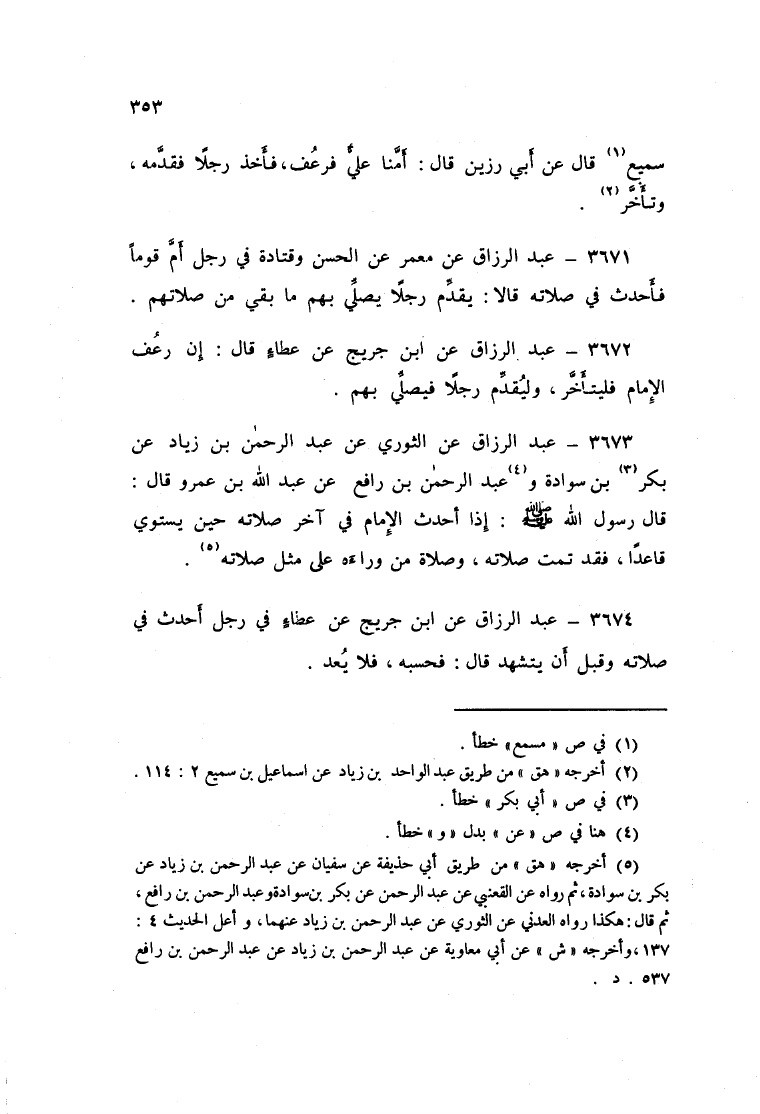 ٣٥٣
سميع(١) قال عن أبي رزين قال : أَمَّنا عليٌّ فرعُف، فأَخذ رجلًا فقدَّمه ،
وتأَخَّر(٢) .
٣٦٧١ – عبد الرزاق عن معمر عن الحسن وقتادة في رجل أَمَّ قوماً
فأَحدث في صلاته قالا : يقدِّم رجلًا يصلِّي بهم ما بقي من صلاتهم .
٣٦٧٢ – عبد الرزاق عن ابن جريج عن عطاءٍ قال : إن رعُف
الإمام فليتأَخَّر ، وليُقدِّم رجلًا فيصلِّي بهم .
٣٦٧٣ – عبد الرزاق عن الثوري عن عبد الرحمٰن بن زياد عن
بكر(٣) بن سوادة و(٤)عبد الرحمٰن بن رافع عن عبد الله بن عمرو قال :
قال رسول الله ﷺ : إذا أحدث الإمام في آخر صلاته حين يستوي
قاعدًا ، فقد تمت صلاته ، وصلاة من وراءه على مثل صلاته(٥) .
٣٦٧٤ – عبد الرزاق عن ابن جريج عن عطاءٍ في رجل أَحدث في
صلاته وقبل أن يتشهد قال : فحسبه ، فلا يُعد .
(١) في ص « مسمع» خطأ .
(٢) أخرجه « هق » من طريق عبد الواحد بن زياد عن اسماعيل بن سميع ٢ : ١١٤ .
(٣) في ص « أبي بكر » خطأ .
(٤) هنا في ص « عن » بدل « و » خطأ .
(٥) أخرجه « هق » من طريق أبي حذيفة عن سفيان عن عبد الرحمن بن زياد عن
بكر بن سوادة ، ثم رواه عن القعنبي عن عبد الرحمن عن بكر بن سوادة وعبد الرحمن بن رافع ،
ثم قال : هكذا رواه العدني عن الثوري عن عبد الرحمن بن زياد عنهما، و أعل الحديث ٤ :
١٣٧ ،وأخرجه « ش » عن أبي معاوية عن عبد الرحمن بن زياد عن عبد الرحمن بن رافع
٥٣٧ . د .